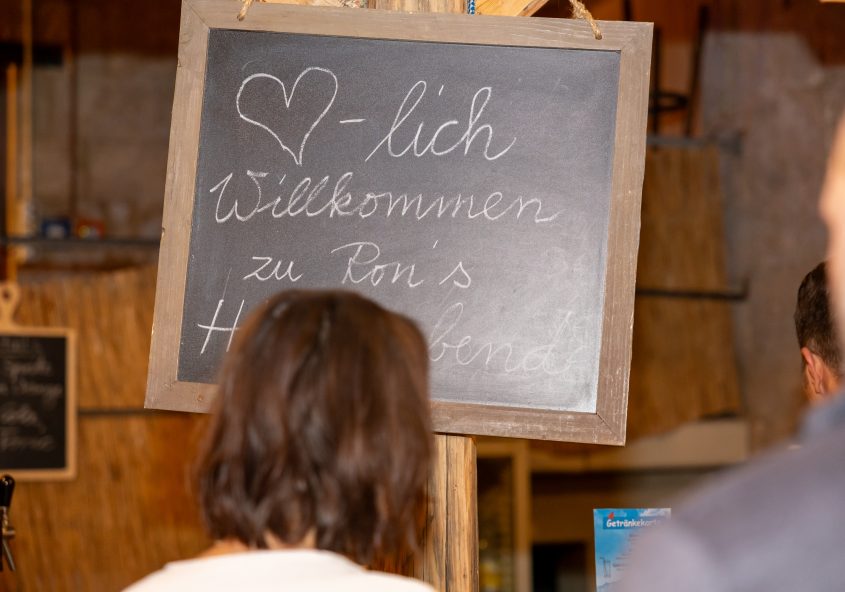 ♡-lich
Willkommen
zu Ron's
H bend
Getränkekarte